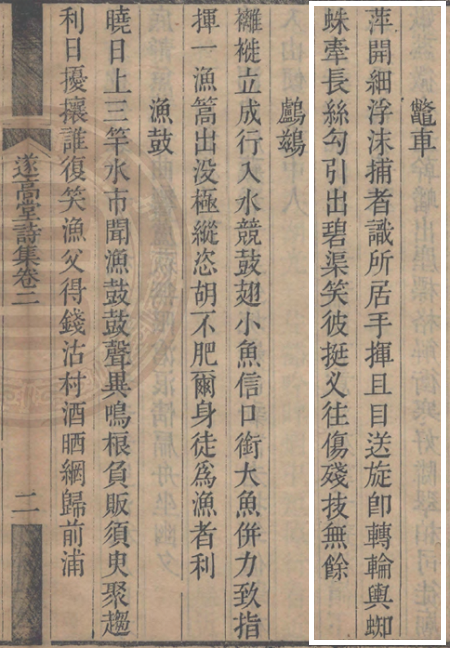 鼈車
萍開細浮沫捕者識所居手揮且目送旋卽轉輪輿蜘
蛛牽長絲勾引出碧渠笑彼挺叉徃傷殘技無餘
鸕鷀
襳褷立成行入水競鼓翅小魚信口銜大魚倂力致指
揮一漁篙出没極縱恣胡不肥爾身徒爲漁者利
漁鼓
曉日上三竿水市聞漁鼓鼓聲異鳴榔負販須臾聚趨
利日擾攘誰復笑漁父得錢沽村酒晒網歸前浦
遂高堂詩集卷二
二